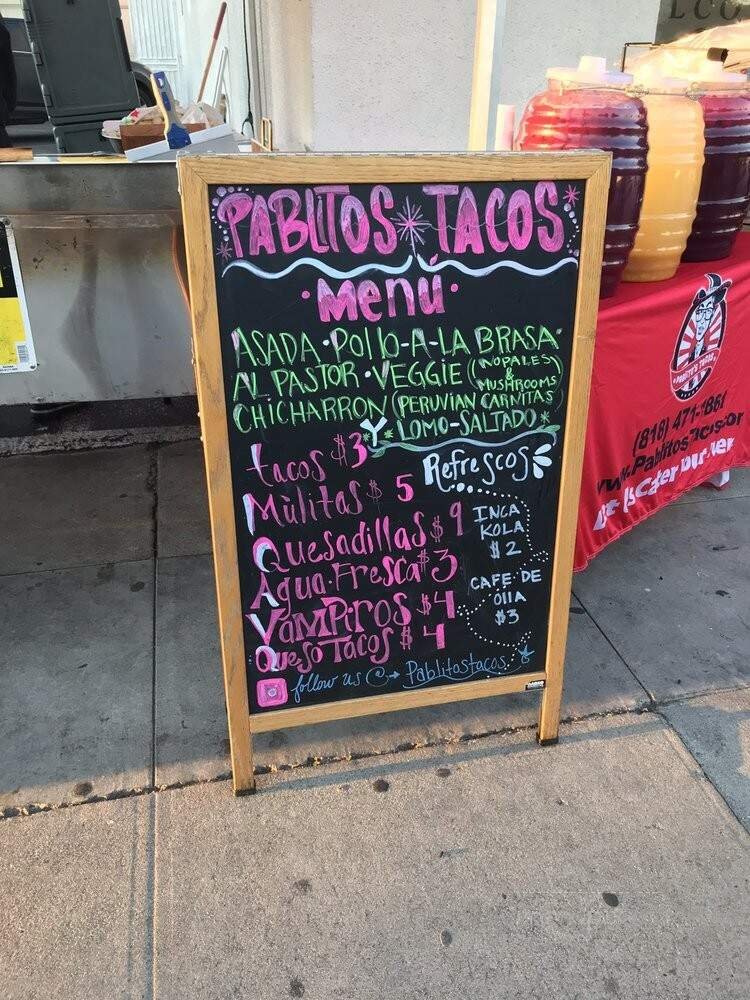 PABLITOS TACOS
Menú
ASADA • Pollo-A-LA BRASA •
AL PASTOR • VEGGIE (NOPALES & MUSHROOMS)
CHICHARRON (PERUVIAN CARNITAS)
Y LOMO-SALTADO
tacos $3
Mulitas $5
Quesadillas $9
Agua Fresca $3
VAMPiROS $4
QuesoTacos $4
Refrescos
INCA
KOLA
$2
CAFE DE
OllA
$3
follow us @ → Pablitostacos.
PABLITO'S TACOS
(818) 471-